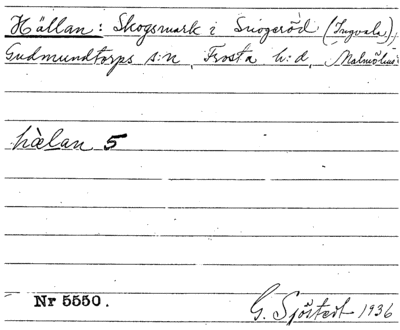 Hällan: Skogsmark i Snogeröd (Ingvala),
Gudmundtorps s:n, Frosta h:d, Malmöhus
hælan 5
Nr 5550.
G. Sjöstedt 1936